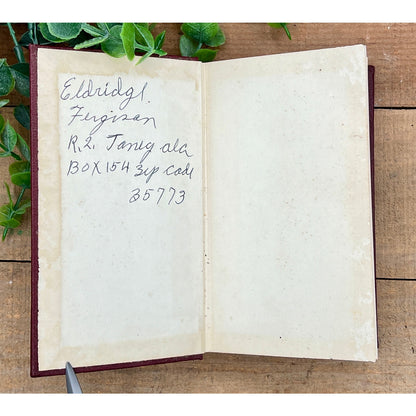 Eldridge.
Fergison
R, 2. Toney ala
BOX 154 zip code
35773